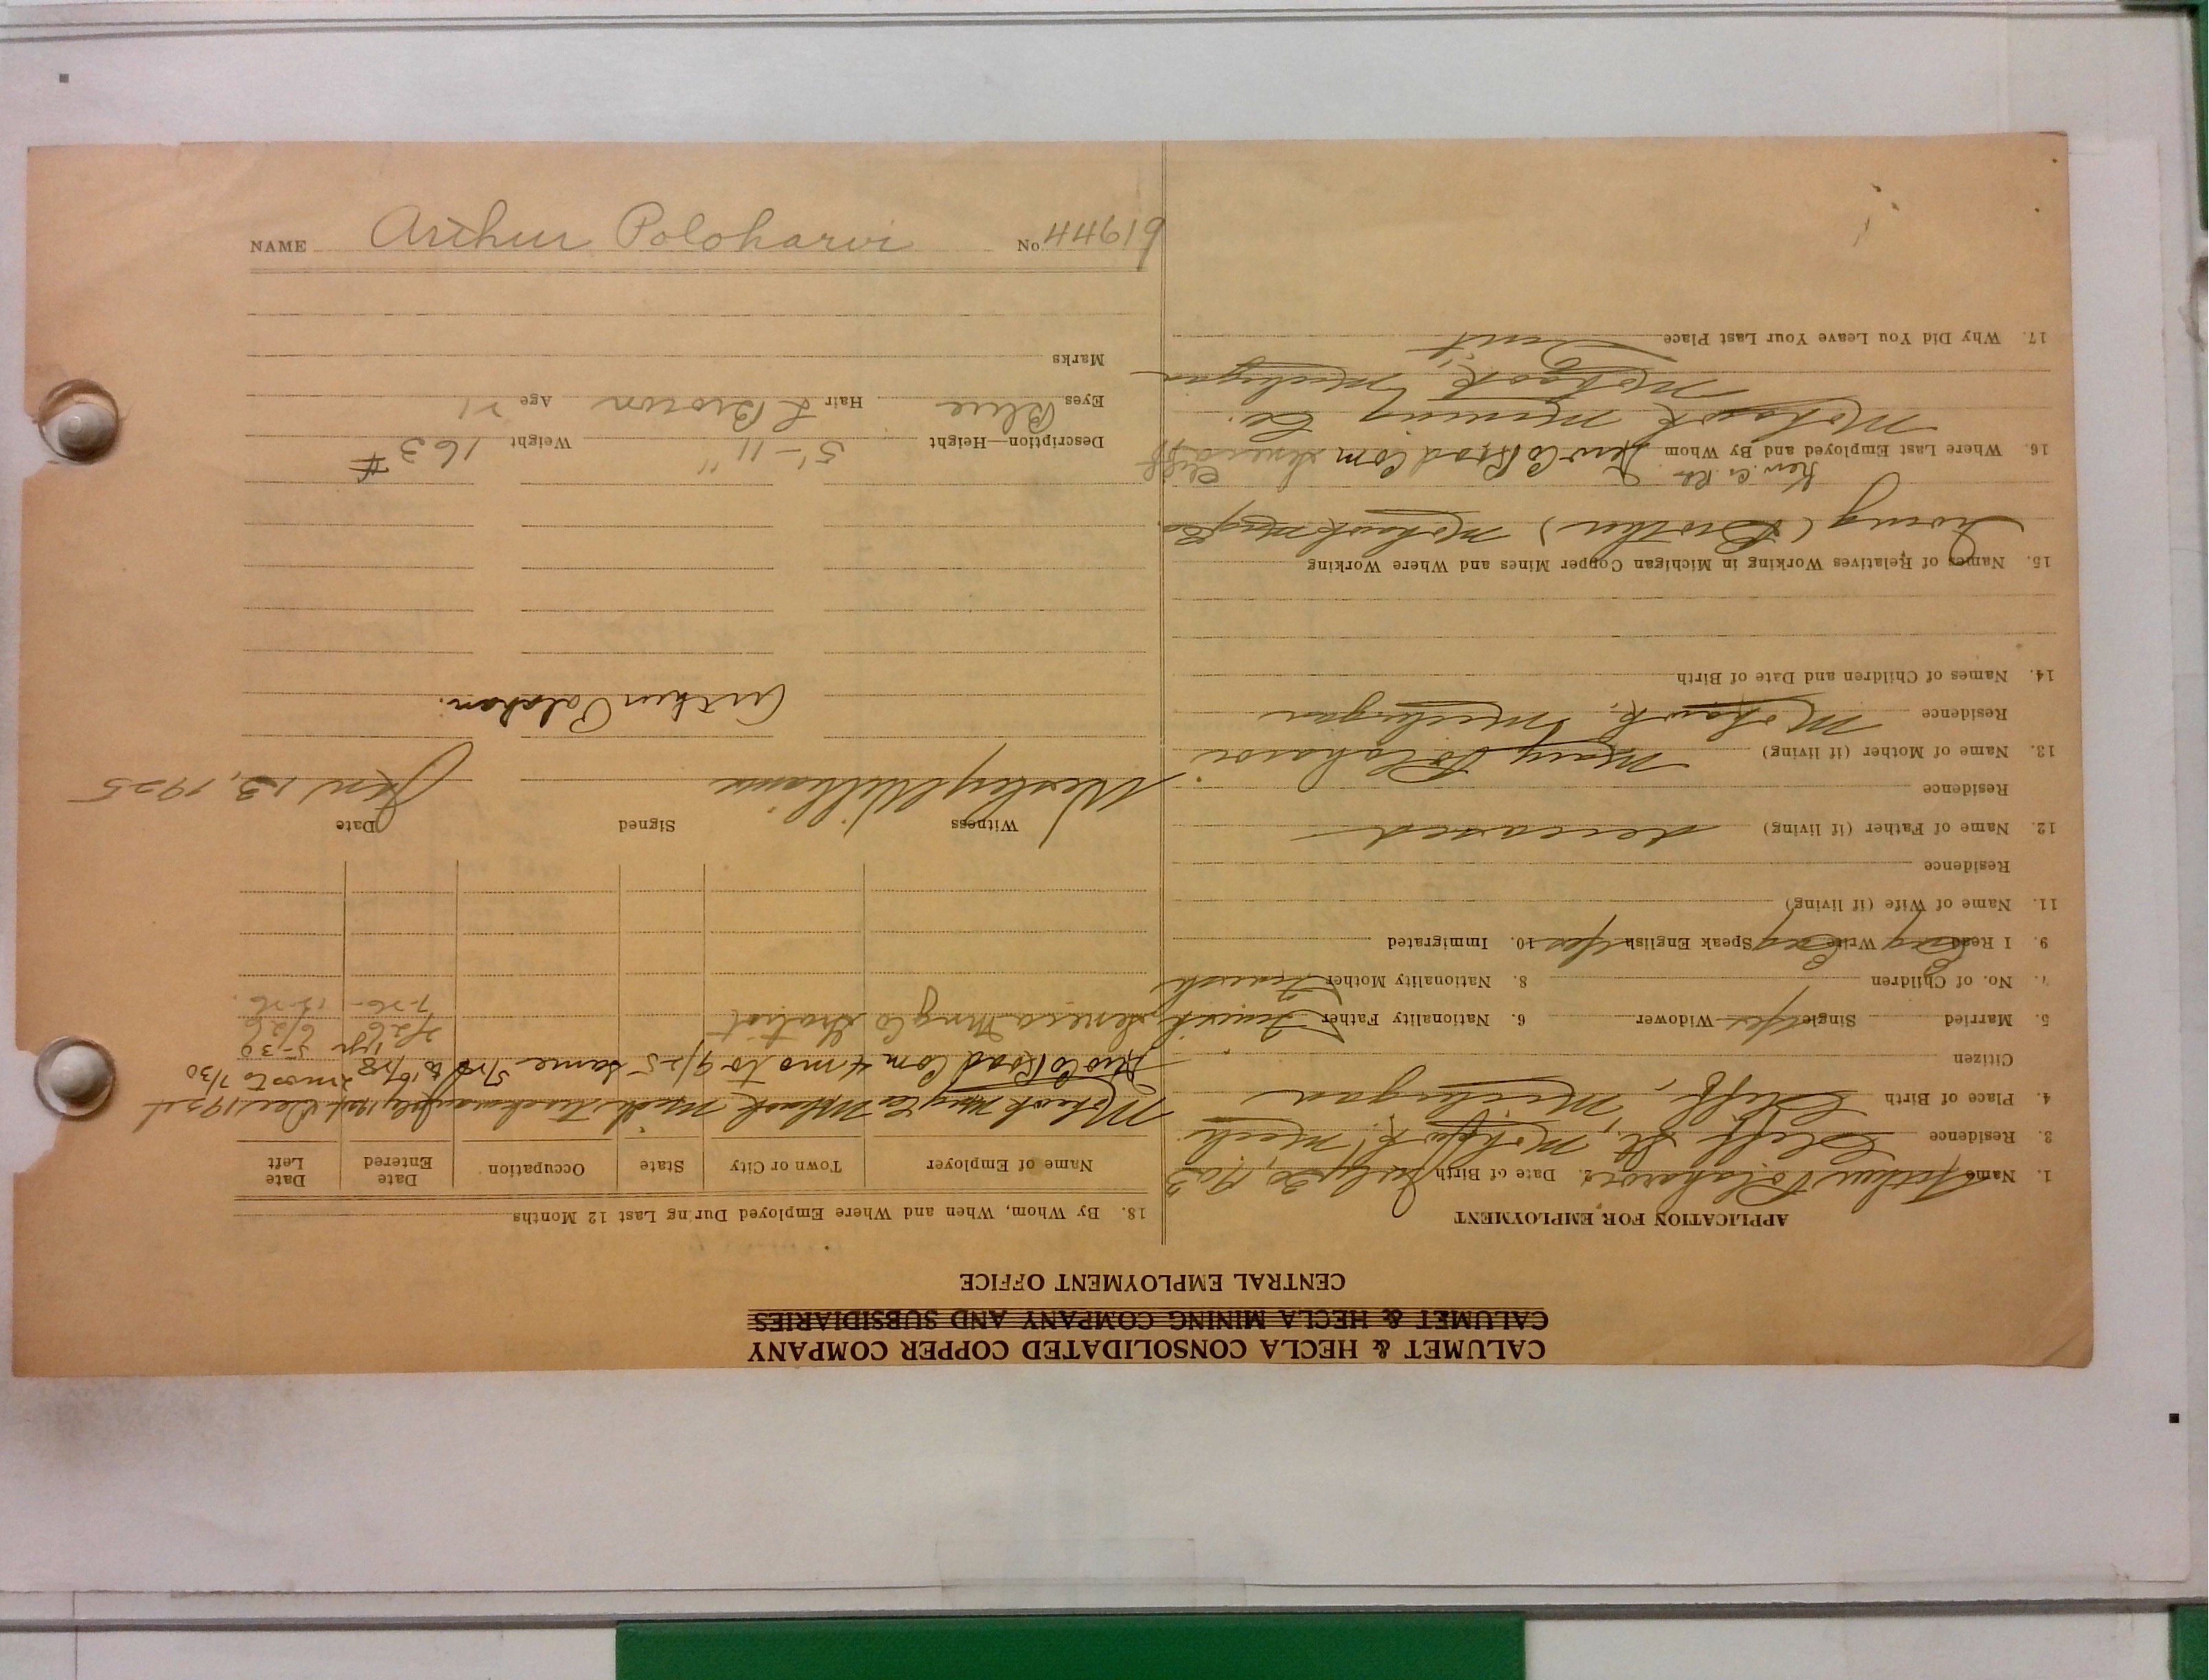 CALUMET & HECLA CONSOLIDATED COPPER COMPANY
CALUMET & HECLA MINING COMPANY AND SUBSIDIARIES
CENTRAL EMPLOYMENT OFFICE
APPLICATION FOR EMPLOYMENT
1. Name Arthur Poloharvi 2. Date of Birth July 30, 1903
3. Residence Cliff St., Mohawk, Mich.
4. Place of Birth Cliff, Michigan
Citizen
5. Married Single Yes Widower 6. Nationality Father Finnish
7. No. of Children 8. Nationality Mother Finnish
9. I Read Eng Write Eng Speak English Yes 10. Immigrated
11. Name of Wife (if living)
Residence
12. Name of Father (if living) deceased
Residence
13. Name of Mother (if living) Mary Poloharvi
Residence Mohawk, Michigan
14. Names of Children and Date of Birth
15. Names of Relatives Working in Michigan Copper Mines and Where Working
(Brother) Mohawk Mng Co.
Kew. Co. Rd. Cliff
16. Where Last Employed and By Whom Kew Co Road Com Seneca
Mohawk Mining Co.
Mohawk, Michigan
17. Why Did You Leave Your Last Place Quit
18. By Whom, When and Where Employed During Last 12 Months
Name of Employer Town or City State Occupation Date Entered Date Left
Mohawk Mng Co Mohawk Mich July 1924 Dec 1924
Kew Co Road Com 4 mo to 9/25 same 2 mos to 7/30
1 yr 5-30
7/26 6/26
Seneca Mng Co Gratiot 7-26 12-26
Witness Signed Date
Wesley Williams Jan 13, 1925
Arthur Polohari.
Description—Height 5'-11" Weight 163 #
Eyes Blue Hair L Brown Age 21
Marks
NAME Arthur Poloharvi No. 44619